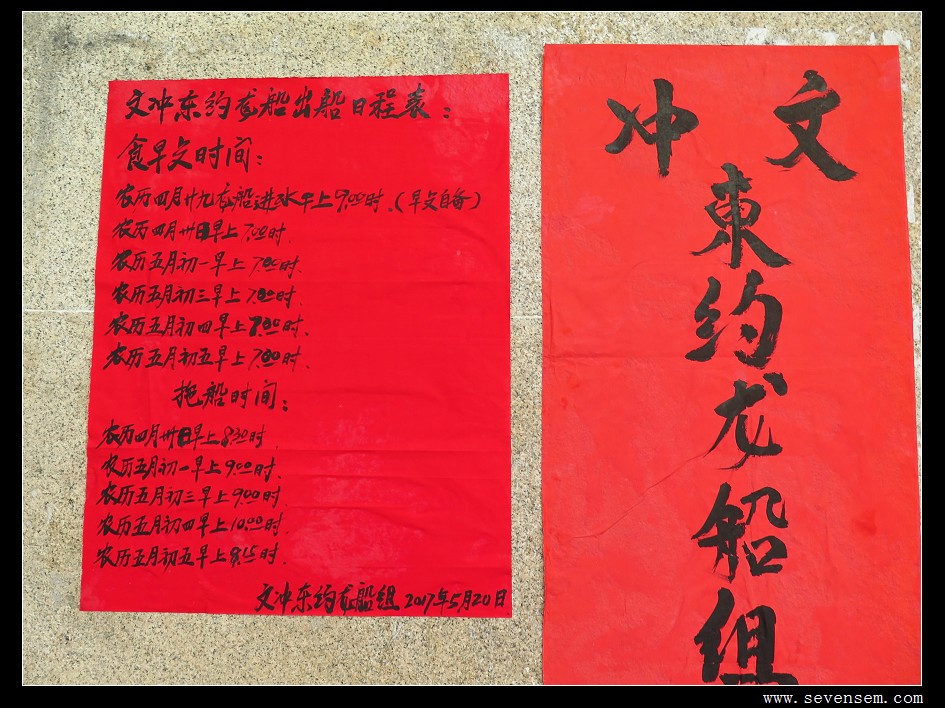 文冲东约龙船出船日程表：
食早文时间：
农历四月廿九龙船进水午上9:00时.（早文自备）
农历四月卅日早上7:00时.
农历五月初一早上7:00时.
农历五月初三早上7:00时.
农历五月初四早上7:00时.
农历五月初五早上7:00时.
拖船时间：
农历四月卅日早上8:30时.
农历五月初一早上9:00时.
农历五月初三早上9:00时
农历五月初四早上10:00时.
农历五月初五早上8:15时.
文冲东约龙船组 2017年5月20日
文冲
東约龙船组
www.sevensem.com